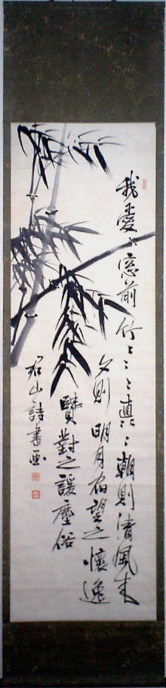 我愛々窓前竹々々真々朝則清風来
夕則明月宿望之懐逸
賢對之謖塵俗
石山詩書画